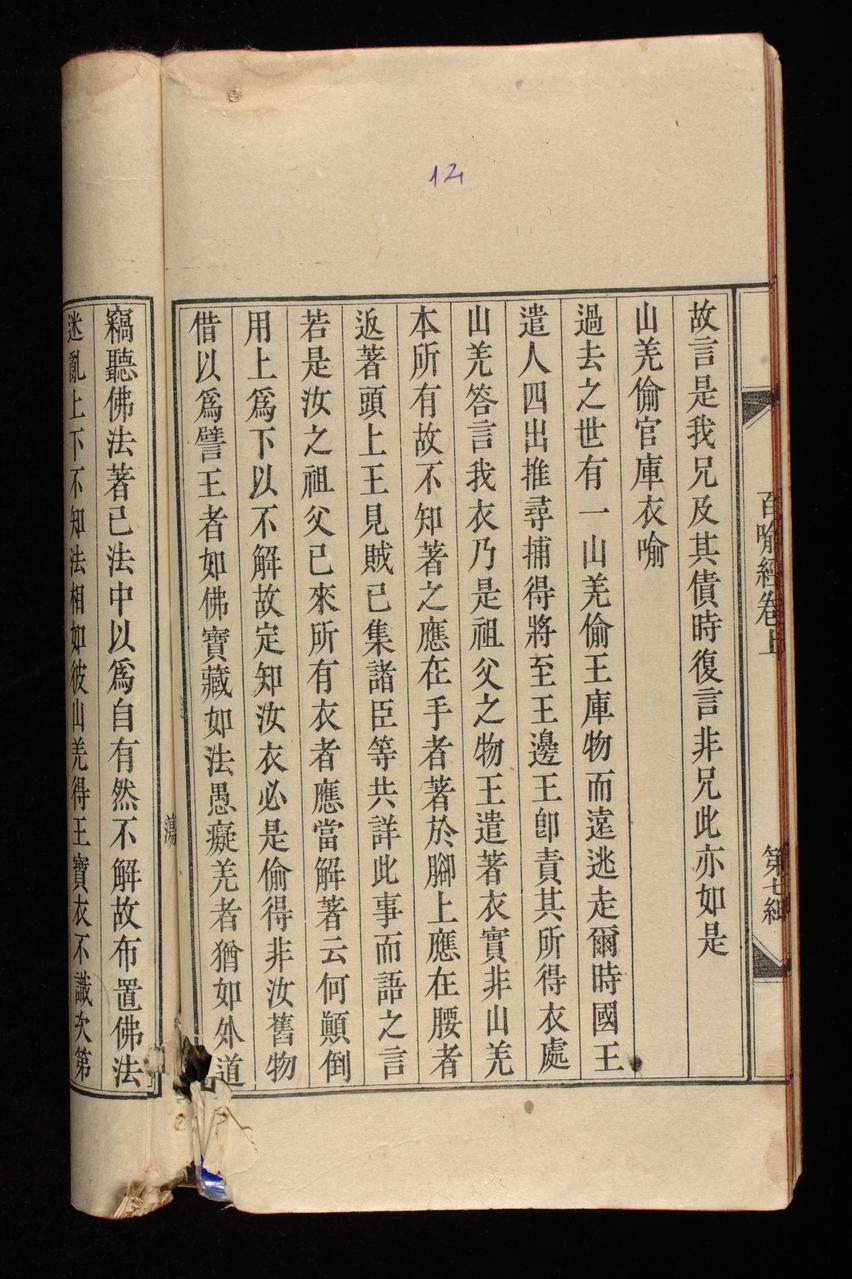 12
百喻經卷上
第七紙
故言是我兄及其債時復言非兄此亦如是
山羌偷官庫衣喻
過去之世有一山羌偷王庫物而遠逃走爾時國王
遣人四出推尋捕得將至王邊王卽責其所得衣處
山羌答言我衣乃是祖父之物王遣著衣實非山羌
本所有故不知著之應在手者著於腳上應在腰者
返著頭上王見賊已集諸臣等共詳此事而語之言
若是汝之祖父已來所有衣者應當解著云何顚倒
用上爲下以不解故定知汝衣必是偷得非汝舊物
借以爲譬王者如佛寶藏如法愚癡羌者猶如外道
竊聽佛法著己法中以爲自有然不解故布置佛法
迷亂上下不知法相如彼山羌得王寶衣不識次第